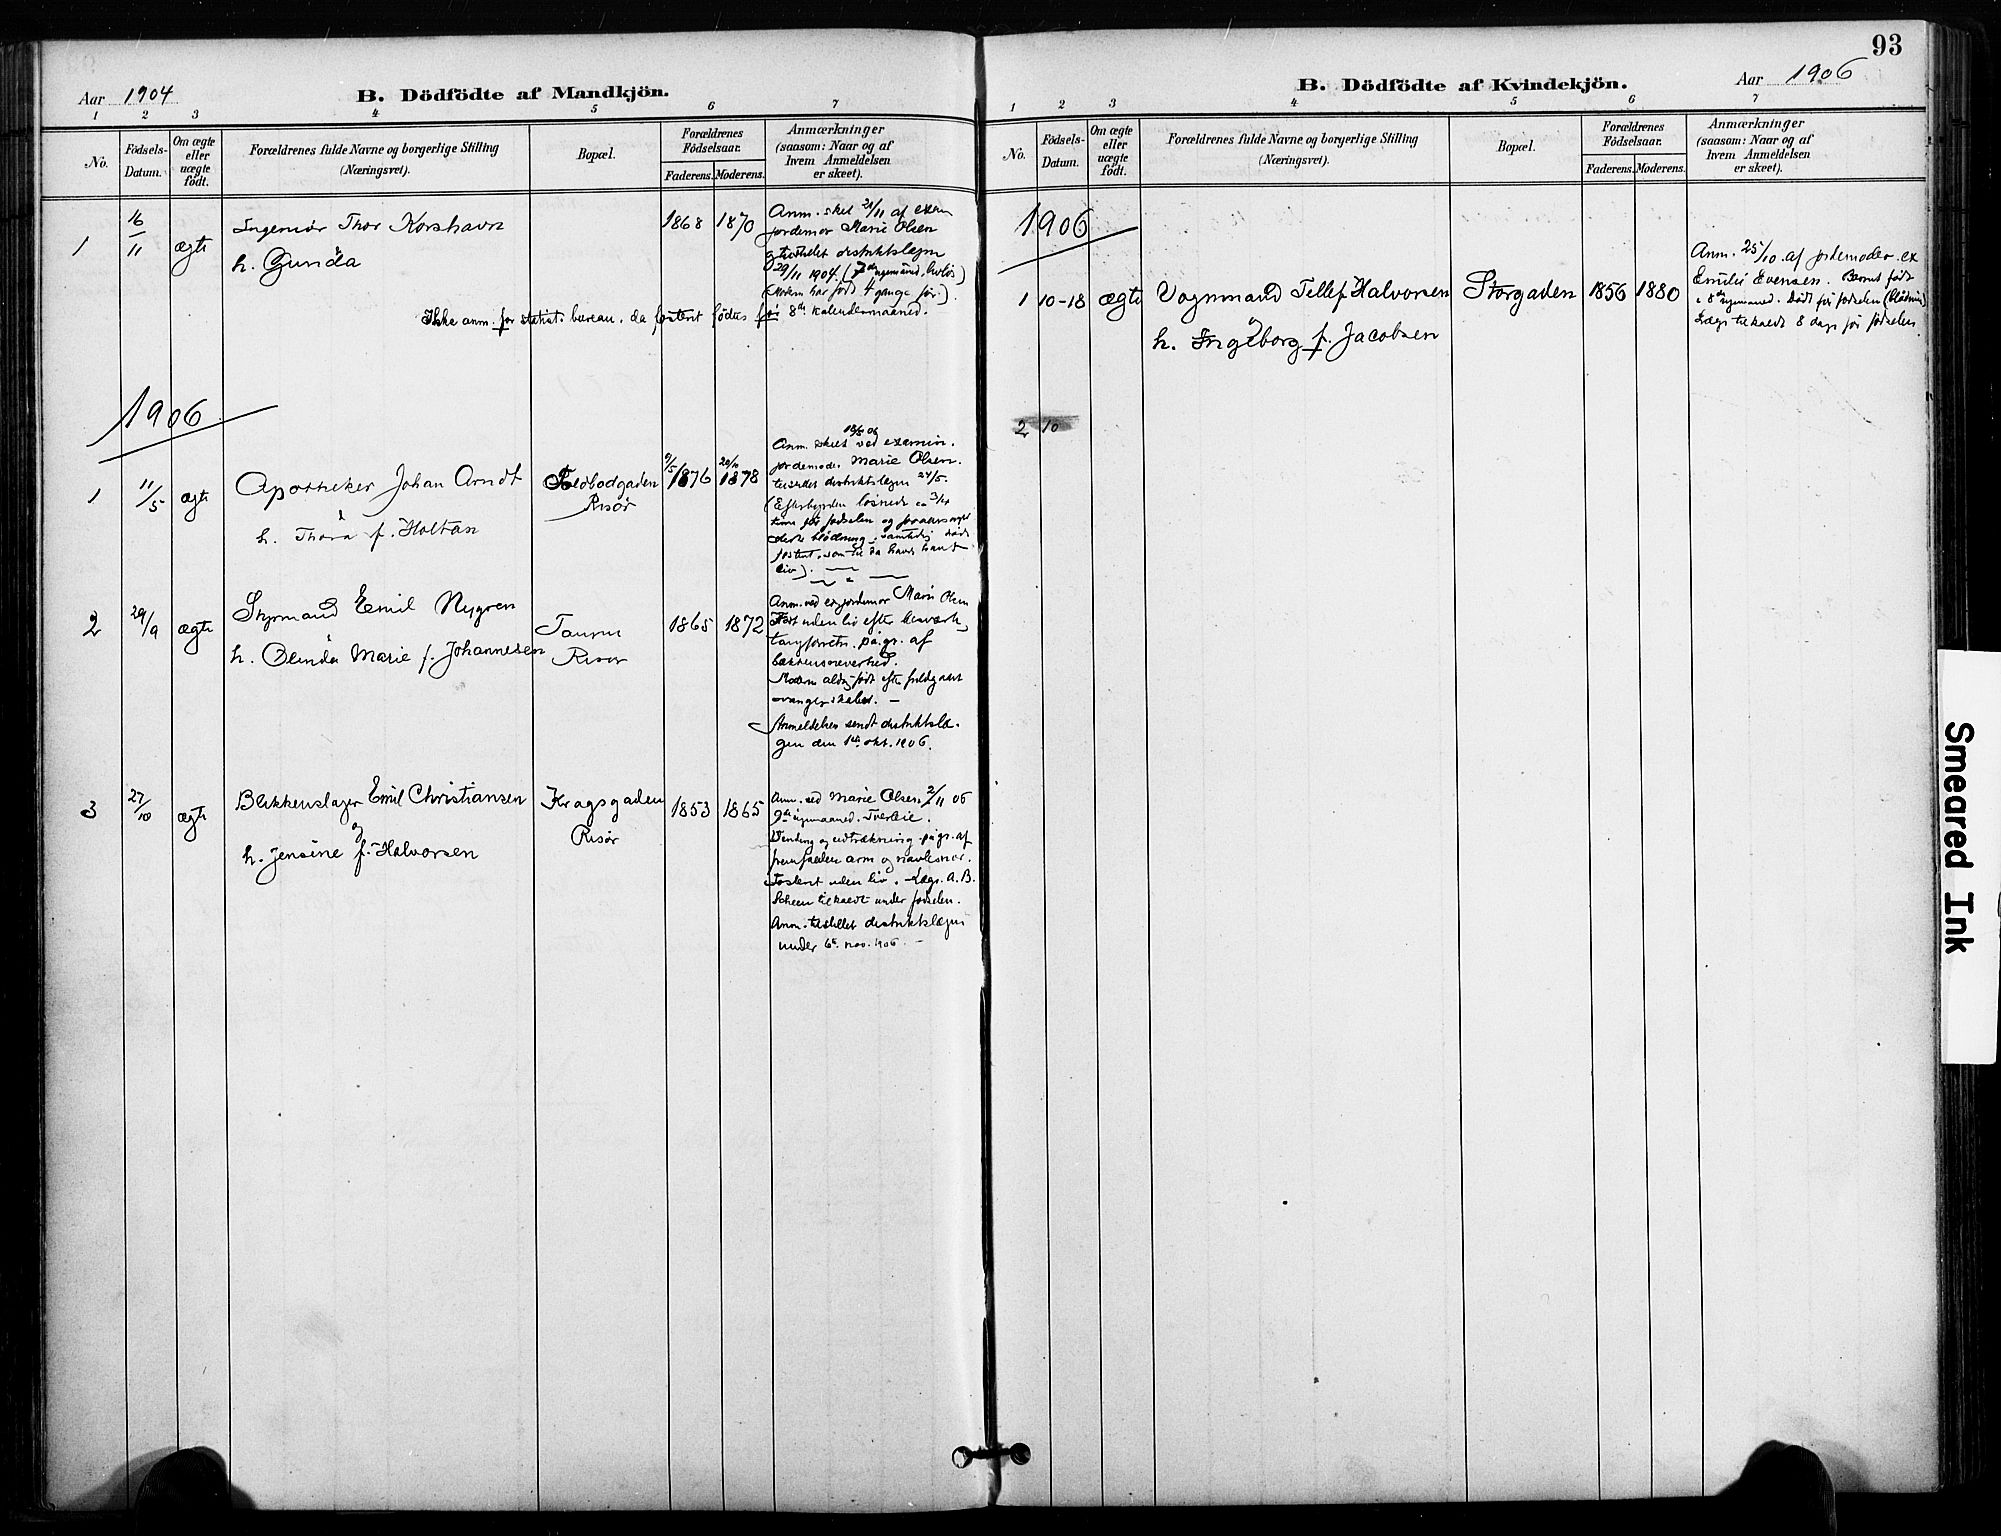 Aar 1904
B. Dödfödte af Mandkjön.
1 2 3 4 5 6 7
No.
Födsels-Datum.
Om ægte eller uægte födt.
Forældrenes fulde Navne og borgerlige Stilling (Næringsvei).
Bopæl.
Forældrenes Födselsaar.
Faderens. Moderens.
Anmærkninger (saasom: Naar og af hvem Anmeldelsen er skeet).
1 16/11 ægte Ingeniör Thor Korshavn 1868 1870
h. Gunda
Anm. sket 21/11 af exam
jordemor Marie Olsen
distriktslægen
29/11 1904.
har födt 4 gange før.)
Ikke anm. for statist. bureau, da fosteret födtes før 8de kalendermaaned.
1906
1 11/5 ægte Apotheker Johan Arndt
h. Thora f. Holtan
Risør
9/5 1876 1878
Anm. skeet ved examin.
jordemoder Marie Olsen.
distriktslægen 24/5.
(Efterbyrden løsnede ca 3/4
time før fødselen og
sterk blødning, samtidig døde
liv).
2 29/9 ægte Styrmand Emil Nygren
h. Olinda Marie f. Johannesen
Risør
1865 1872
Anm. ved ex jordemor Marie Olsen
Født uden liv efter besværlig
tangforretn. pågr. af
Moderen aldrig født efter fuldgaaet
svangerskabet. –
Anmeldelsen sendt distriktslæ-
gen den 1ste okt. 1906.
3 27/10 ægte Blikkenslager Emil Christiansen
h. Jensine f. Halvorsen
Kragsgaden
Risør
1853 1865
Anm. ved Marie Olsen 2/11 06
9de ugemaaned. Tverleie.
Vending og udtrækning pågr. af
fremfalden arm og navlesnor.
Fosteret uden liv. Læge A. B.
Scheen tilkaldt under fødselen.
Anm. tilstillet distriktslægen
under 6te nov. 1906. –
93
B. Dödfödte af Kvindekjön.
Aar 1906
1 2 3 4 5 6 7
No.
Födsels-Datum.
Om ægte eller uægte födt.
Forældrenes fulde Navne og borgerlige Stilling (Næringsvei).
Bopæl.
Forældrenes Födselsaar.
Faderens. Moderens.
Anmærkninger (saasom: Naar og af hvem Anmeldelsen er skeet).
1906
1 10-18 ægte Vognmand Tellef Halvorsen Storgaden 1856 1880
h. Ingeborg f. Jacobsen
Anm. 25/10 af jordemoder ex
Emilie Evensen. Barnet født
i 8de ugemaaned. Dødt før fødselen (blødning)
Læge tilkaldt 8 dage før fødselen.
2 10
Smeared Ink